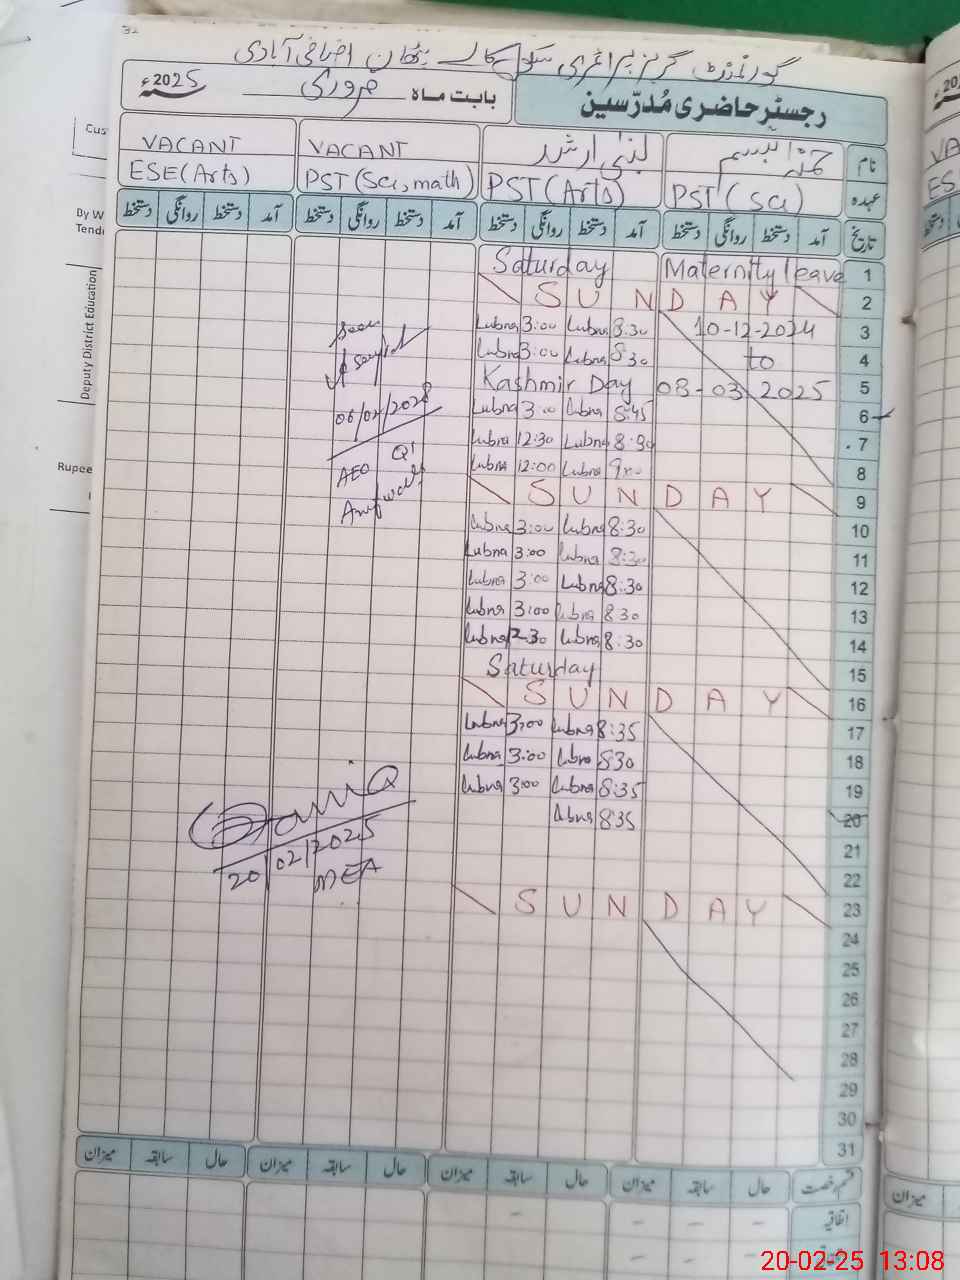 32
گورنمنٹ گرلز پرائمری سکول کالے پٹھان اضافی آبادی
رجسٹر حاضری مُدرّسین
بابت ماہ فروری 2025ء
نام
VACANT VACANT لبنیٰ ارشد
عہدہ
ESE(Arts) PST(Sci, math) PST(Arts) PST(Sci)
تاریخ آمد دستخط روانگی دستخط آمد دستخط روانگی دستخط آمد دستخط روانگی دستخط آمد دستخط روانگی دستخط
Saturday Maternity leave 1
S U N D A Y 2
Lubna 3:00 Lubna 8:30 10-12-2024 3
Lubna 3:00 Lubna 8:30 to 4
Kashmir Day 08-03-2025 5
Lubna 3:00 Lubna 8:45 6
Lubna 12:30 Lubna 8:30 7
Lubna 12:00 Lubna 8
S U N D A Y 9
Lubna 3:00 Lubna 8:30 10
Lubna 3:00 Lubna 8:30 11
Lubna 3:00 Lubna 8:30 12
Lubna 3:00 Lubna 8:30 13
Lubna 2:30 Lubna 8:30 14
Saturday 15
S U N D A Y 16
Lubna 3:00 Lubna 8:35 17
Lubna 3:00 Lubna 8:30 18
Lubna 3:00 Lubna 8:35 19
Lubna 8:35 20
21
22
S U N D A Y 23
24
25
26
27
28
29
30
31
Seen
AEO
20/02/2025
MEA
قسم رخصت حال سابقہ میزان حال سابقہ میزان حال سابقہ میزان حال سابقہ میزان
اتفاقیہ
میزان
Cus
By W
Tende
Deputy District Education
Rupee
VA
ES
20-02-25 13:08